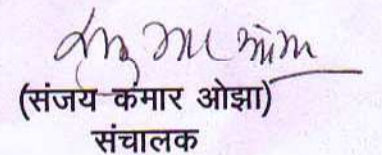 (संजय कंमार ओझा)
संचालक